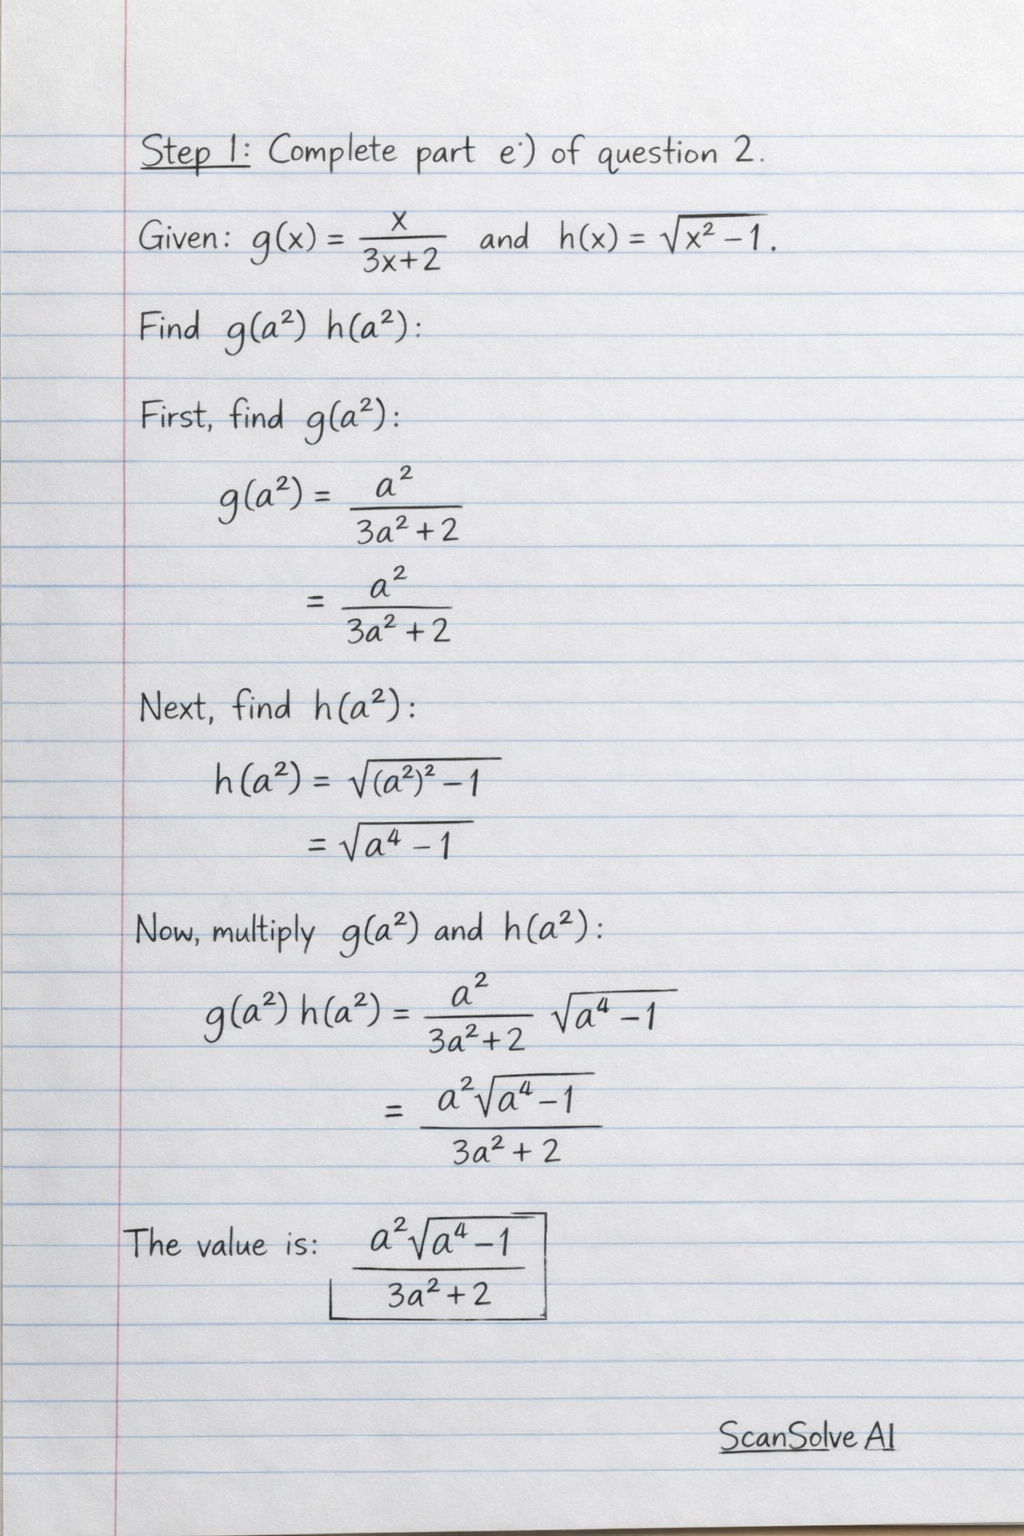 Step 1: Complete part e·) of question 2.
Given: g(x) = x/(3x+2) and h(x) = √(x² – 1).
Find g(a²) h(a²):
First, find g(a²):
g(a²) = a²/(3a² + 2)
= a²/(3a² + 2)
Next, find h(a²):
h(a²) = √((a²)² – 1)
= √(a⁴ – 1)
Now, multiply g(a²) and h(a²):
g(a²) h(a²) = a²/(3a² + 2) √(a⁴ – 1)
= a²√(a⁴ – 1)/(3a² + 2)
The value is: a²√(a⁴ – 1)/(3a² + 2)
ScanSolve AI